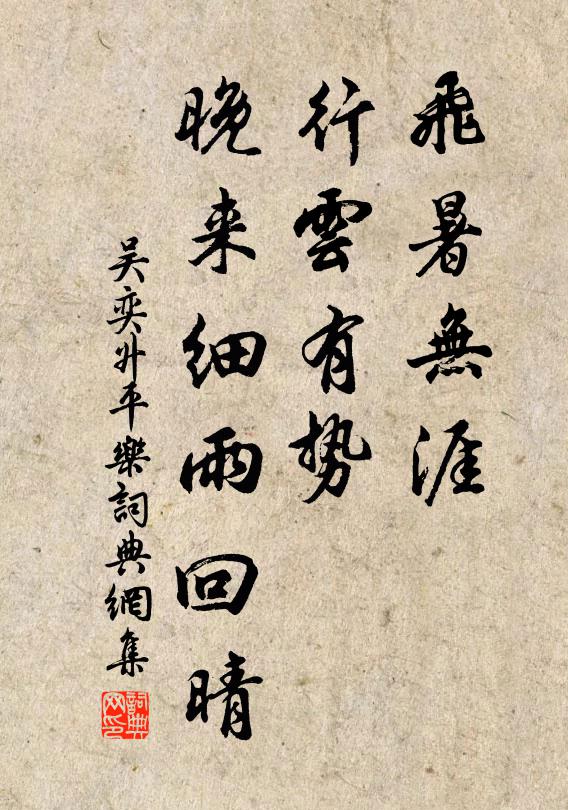 飛暑無涯
行雲有勢
晚来細雨回晴
吴奕升平樂詞典網集
詞典网印